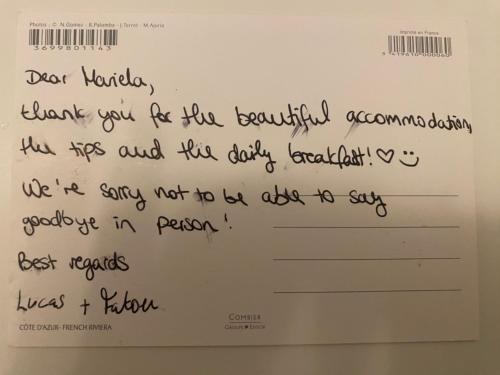 Photos : © N.Gomez - R.Palomba - J.Torrel - M.Ajuria
Imprimé en France
3699801143
9419610000060
Dear Mariela,
thank you for the beautiful accommodation,
the tips and the daily breakfast! ♡ :)
We're sorry not to be able to say
goodbye in person!
Best regards
Lucas +
COMBIER
GROUPE EDITOR
CÔTE D'AZUR- FRENCH RIVIERA